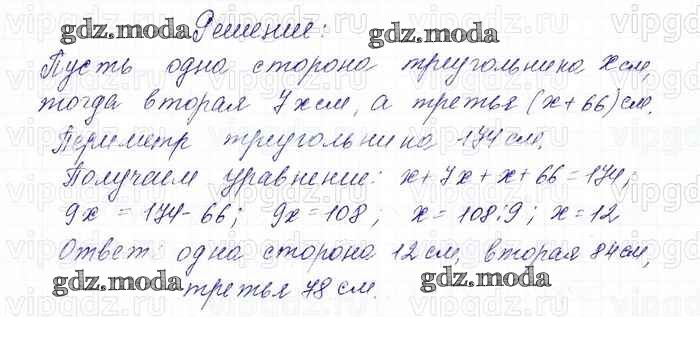 Решение:
Пусть одна сторона треугольника x см,
тогда вторая 7x см, а третья (x+66) см.
Периметр треугольника 174 см.
Получаем уравнение: x+7x+x+66=174;
9x=174-66; 9x=108; x=108:9; x=12
Ответ: одна сторона 12 см, вторая 84 см,
третья 78 см.
gdz.moda
gdz.moda
gdz.moda
gdz.moda
vipgdz.ru